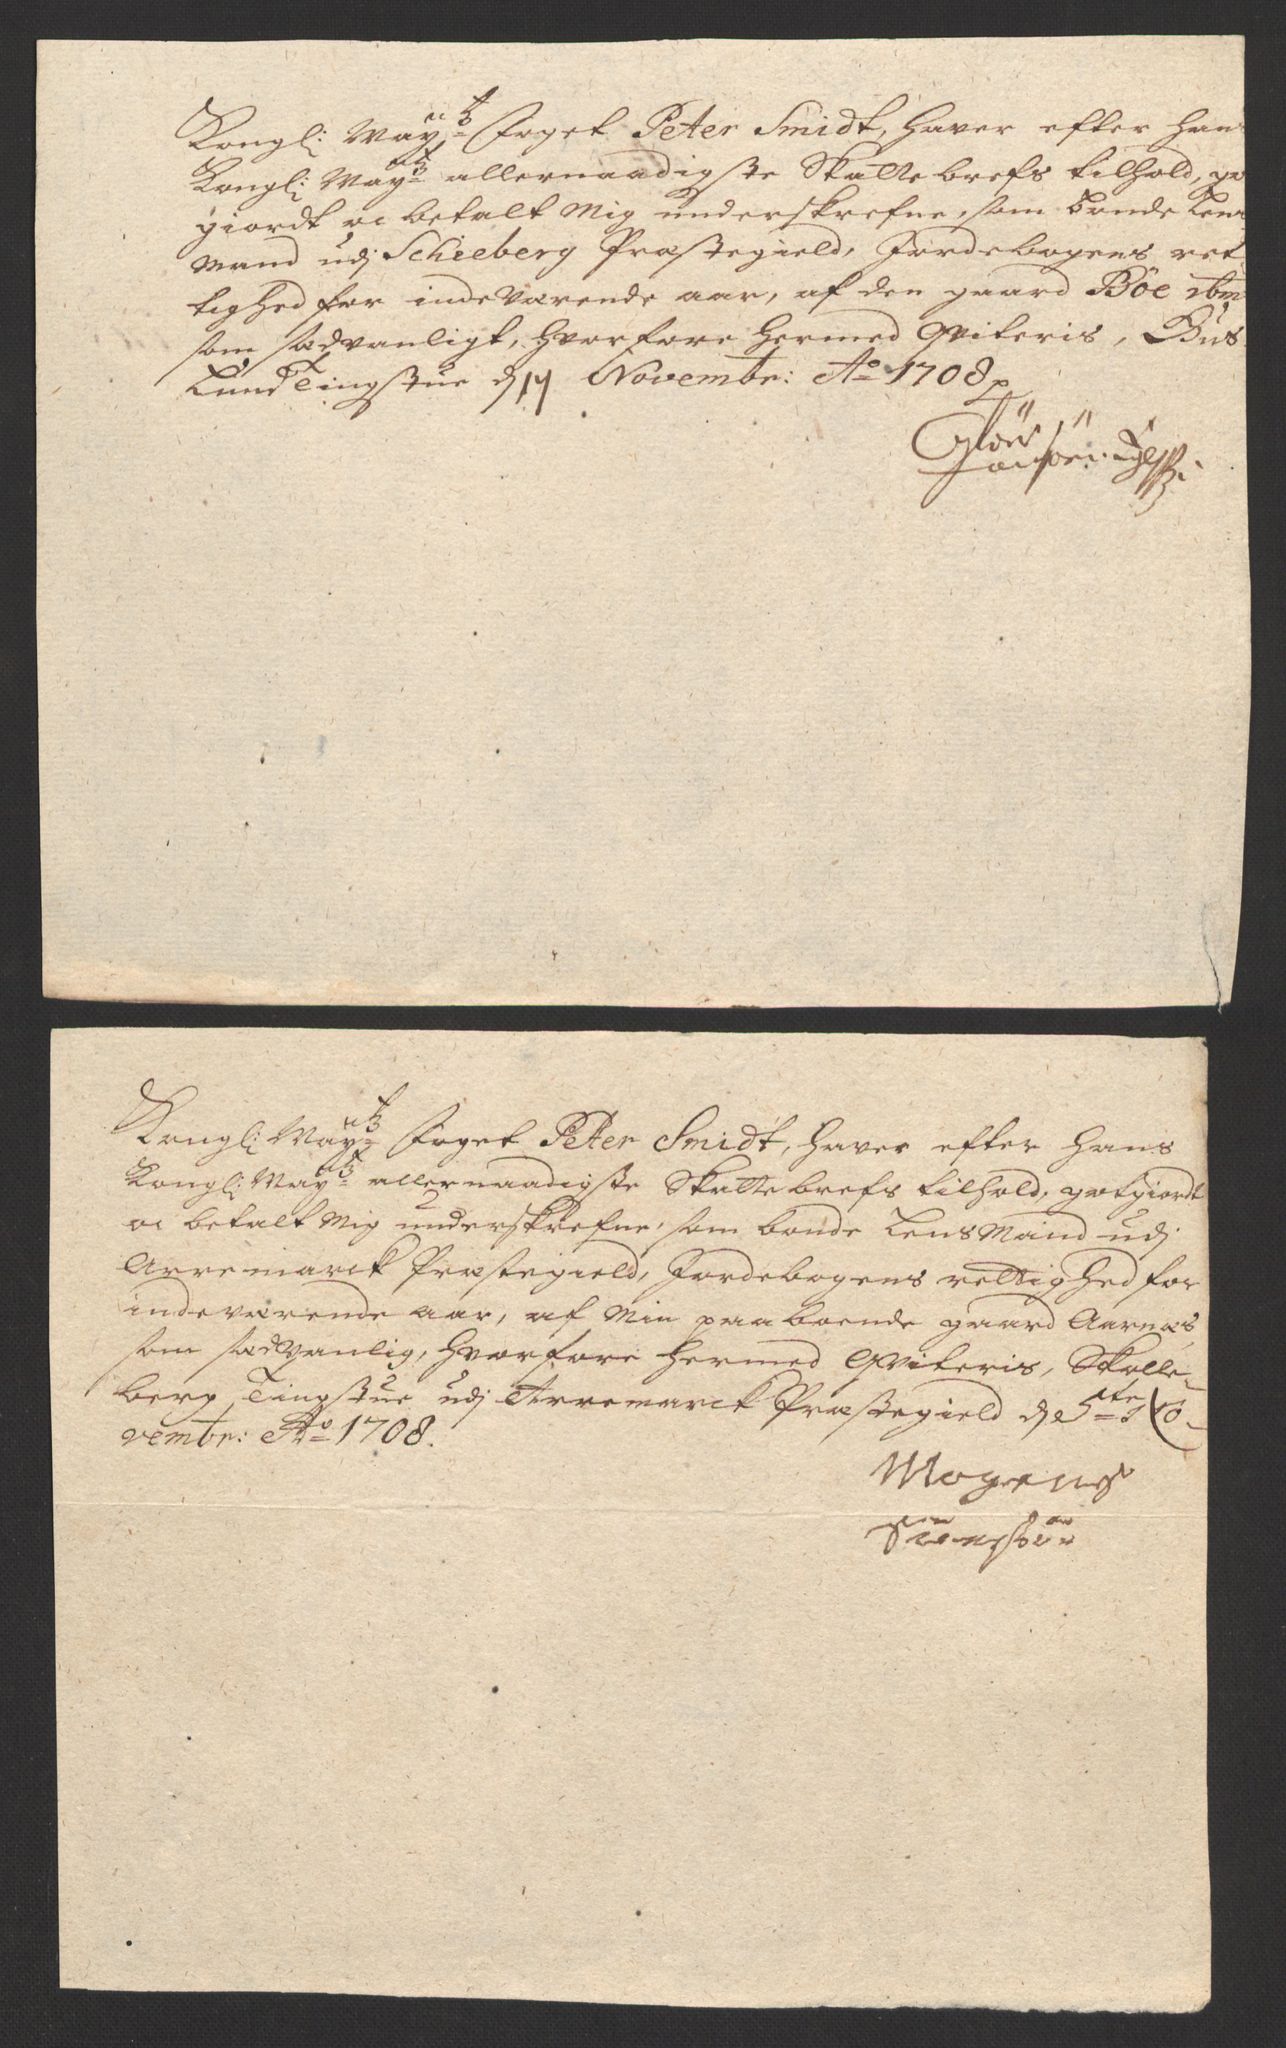 Kongl: May:tz foget Peter Smidt, haver efter han
Kongl: May:tz allernaadigste Skattebrefs tilhold, go
giordt oc betalt Mig underskrefne, som bonde Lens
Mand udj Schieberg Præstegield, Jordebogens ret
tighed for indeværende aar, af den gaard Böe ibm
som sædvanligt, hvorfore hermed Qviteris, Bus
Lund Tingstue d
Novembr: Ao 1708
Kongl: May:tz foget Peter Smidt, haver efter hans
Kongl: May:tz allernaadigste Skattebrefs tilhold, gotgiordt
oc betalt Mig underskrefne, som bonde Lens Mand udj
Arremarck Præstegield, Jordebogens rettighed for
indeværende aar, af Min paaboende gaard Aarnæs
som sædvanlig, hvorfore hermed Qviteris, Skolle-
berg Tingstue udj Arremarck Præstegield d. 5te No-
vembr: Ao 1708.
Mogens
Suenssön